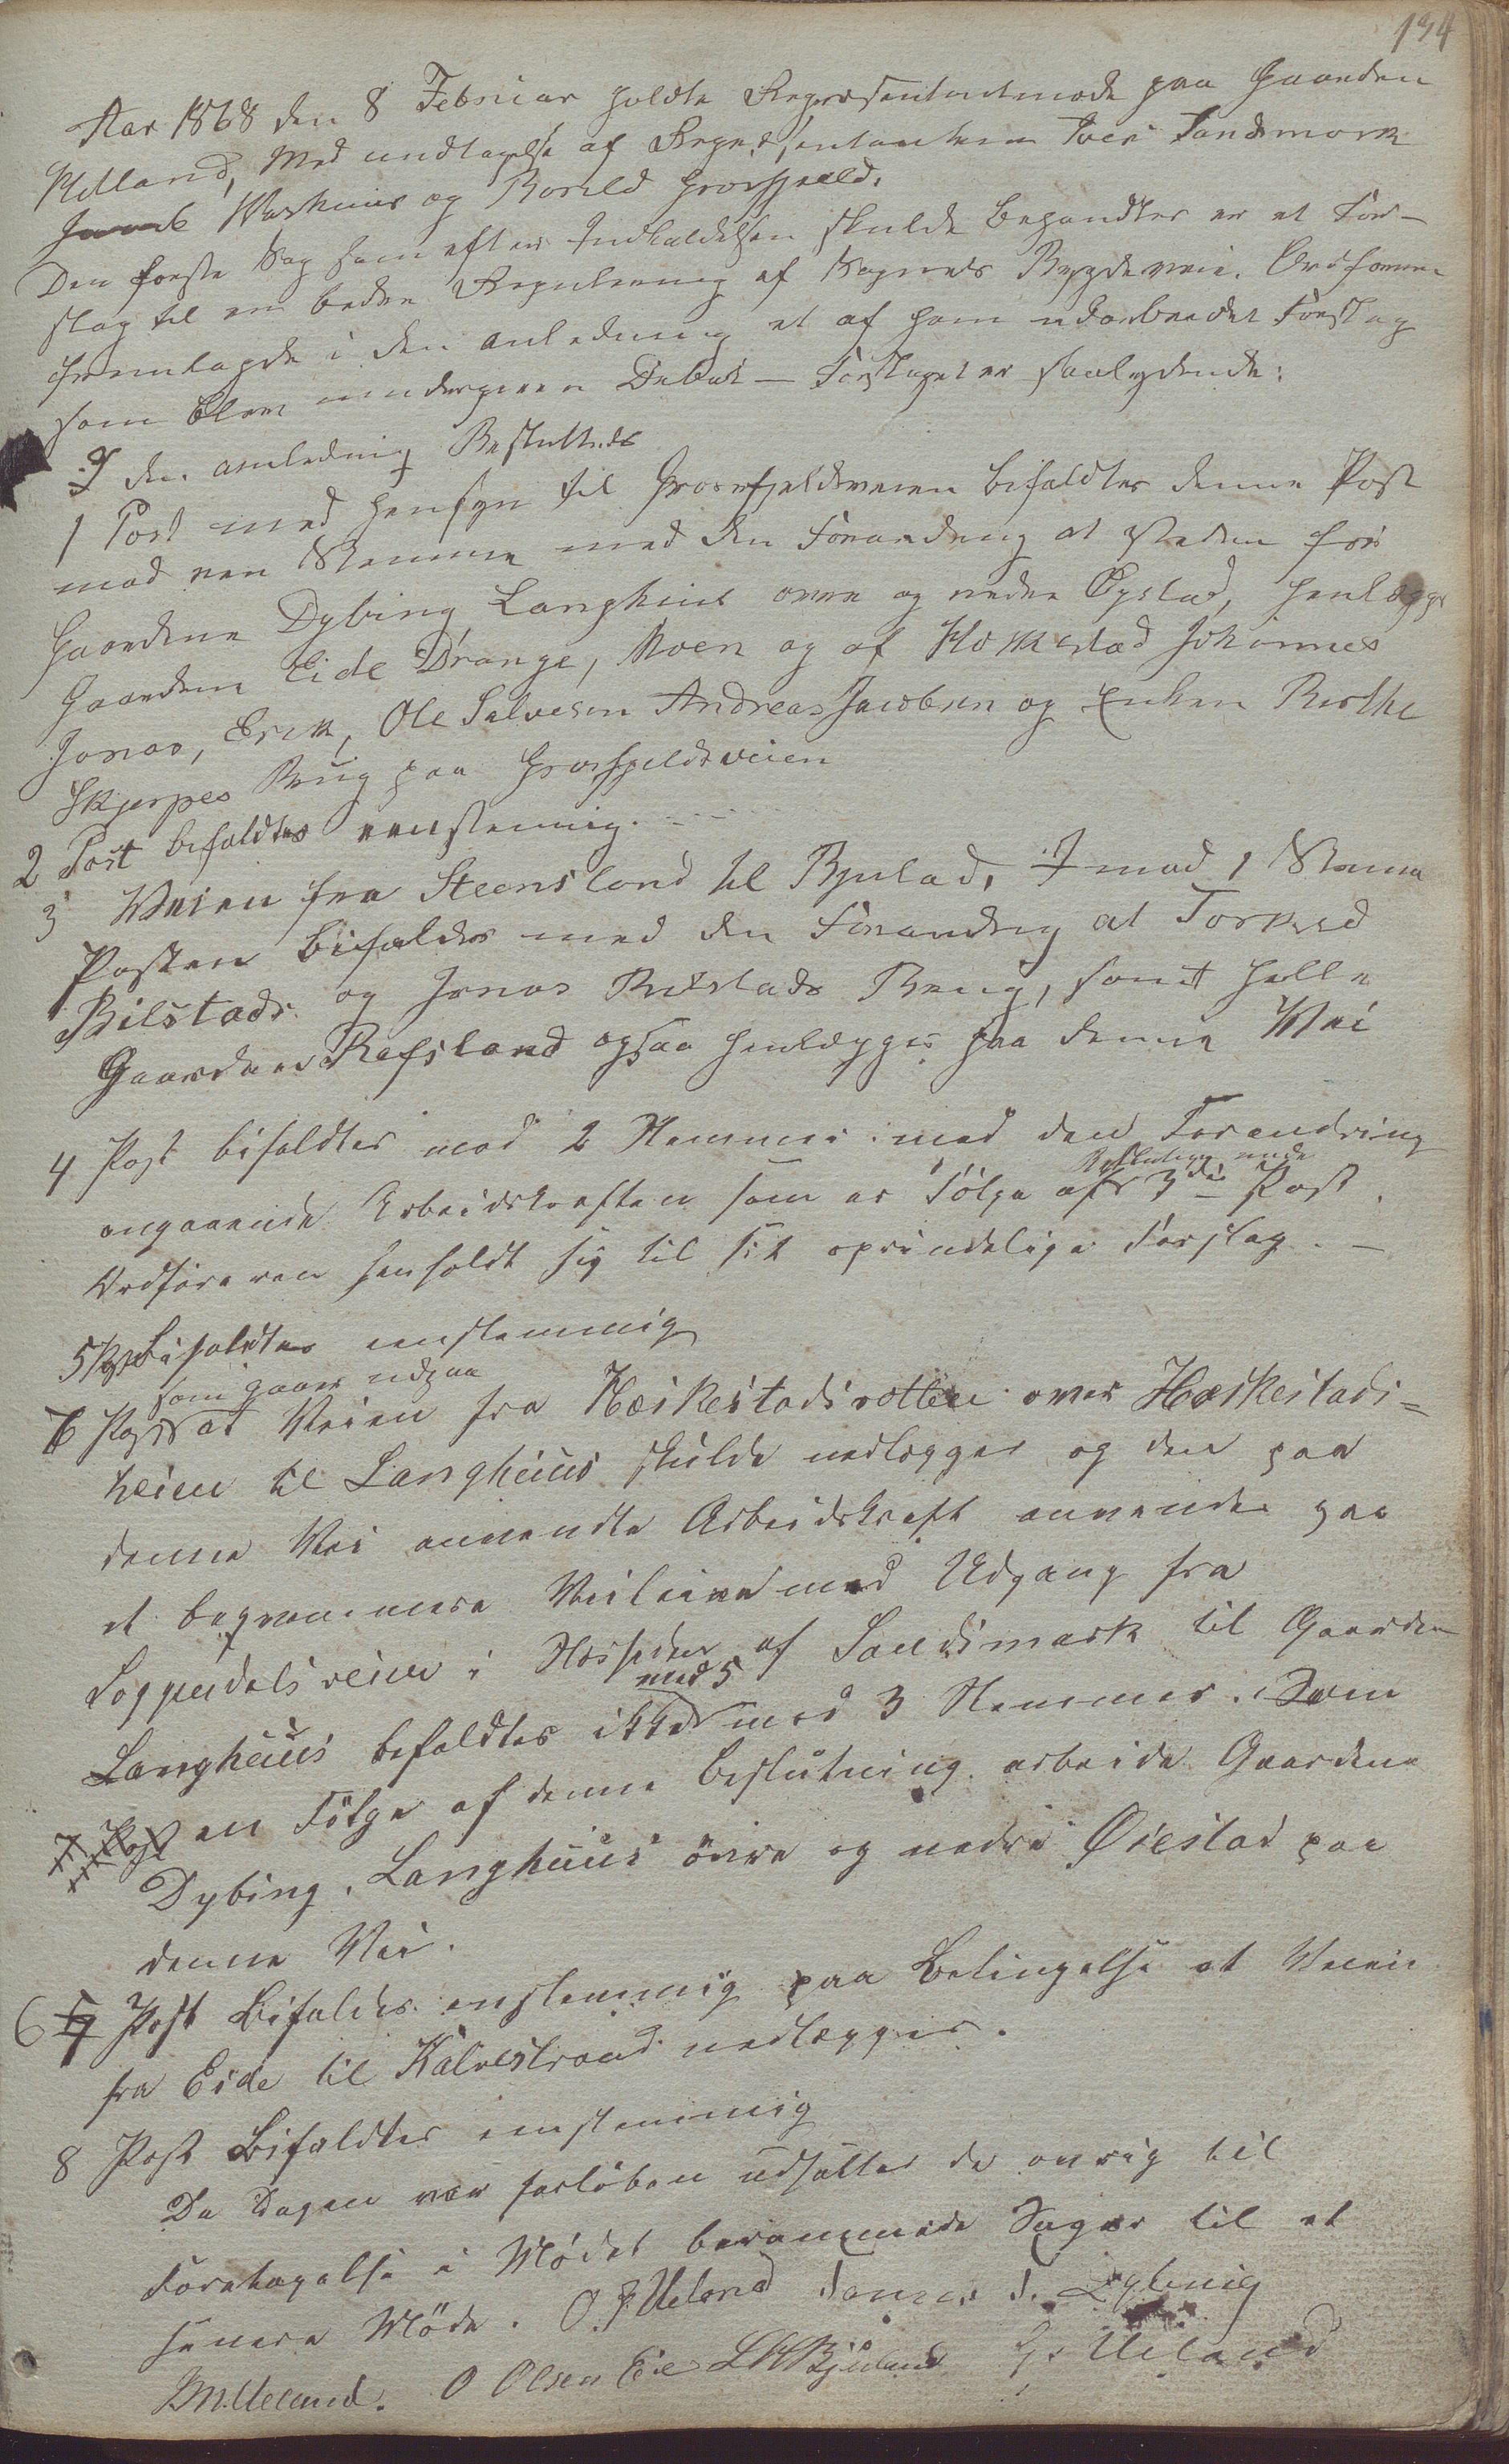 134
Aar 1868 den 8 Februar holdte Repræsentantmøde paa Gaarden
Helland, Med undtagelse af Repræsentanterne Iver Sandsmork
Vashuus og Boreld Grosfjeld.
Den første Sag som efter Indkaldelsen skulde behandles er et For-
slag til en bedre Regulering af Sognets Bygdeveie. Ordføreren
fremlagde i den anledning et af ham udarbeidet Forslag
som blev undergiven Debat — Forslaget er saalydende:
I den anledning Besluttedes
1 Post med hensyn til Grosfjeldsveien bifaldtes denne Post
mod een Stemme med den Forandring at istedenfor
Gaardene Dybing Langhuus øvre og nedre Øystad, henlægges
Gaardene Eide Drange, Moen og af Hæskestad Johannes
Jonas, Erik, Ole Salvesen Andreas Jacobsen og Enken Berthe
Skjerpes Brug paa Grosfjeldsveien
2 Post bifaldtes eenstemmig.
3 Veien fra Steensland til Bjulad, imod 1 Stemme
Posten bifaldes med den Forandring at Torkild
Bilstads og Jonas Bilstads Brug, samt hele
Gaarden Refsland ogsaa henlægges paa denne Vei
4 Post bifaldtes mod 2 Stemmer med den Forandring
Beslutning unde
angaaende Arbeidskraften som er Følge af 3die Post.
Ordføreren henholdt sig til sit oprindelige Forslag. —
5 Post Bifaldtes enstemmig
som gaar udpaa
6 Post at Veien fra Hæskestadsvatten over Hæskestads=
heien til Langhuus skulde nedlægges og den paa
denne Vei anvendte Arbeidskraft anvendes paa
et beqvemmere Veilinie med Udgang fra
Loppendalsveien i af Sandsmark til Gaarden
med 5
Langhuus bifaldtes ikke mod 3 Stemmer. Som
7 Post en Følge af denne Beslutning arbeide Gaardene
Dybing, Langhuus øvre og nedre Øiestad paa
denne Vei.
6 7 Post Bifaldes enstemmig paa Betingelse at Veien
fra Eide til Kalvestrand nedlægges.
8 Post Bifaldtes enstemmig
Da Dagen var forløben udsattes de øvrig til
Foretagelse i Mødet berammede Sager til et
senere Møde. O. J Ueland Dybing
Ueland. O Olsen Eie Ueland